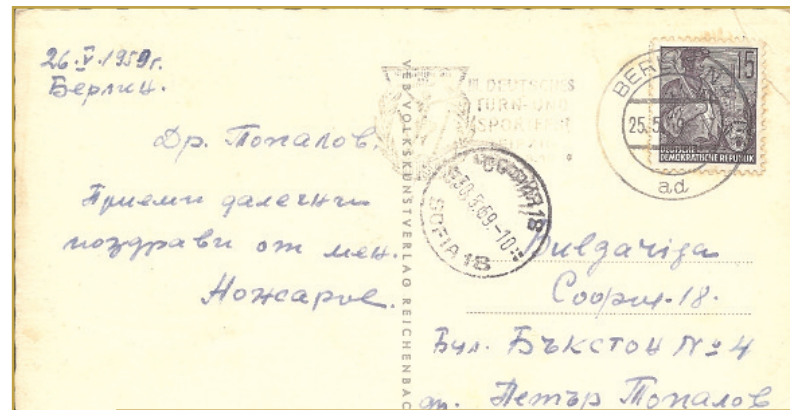 26.V.1959г.
Берлин.
Др. Попалов.
Приеми далечни
поздрави от мен.
Ножаров.
VEB VOLKSKUNSTVERLAG REICHENBAC
III. DEUTSCHES
TURN- UND
SPORTFEST
BERLIN
25.5.
ad
15
DEUTSCHE
DEMOKRATISCHE REPUBLIK
СОФИЯ 18
30.5.59.-10
SOFIA 18
Bulgariya
София-18.
Бул. Бъкстон № 4
др. Петър Попалов